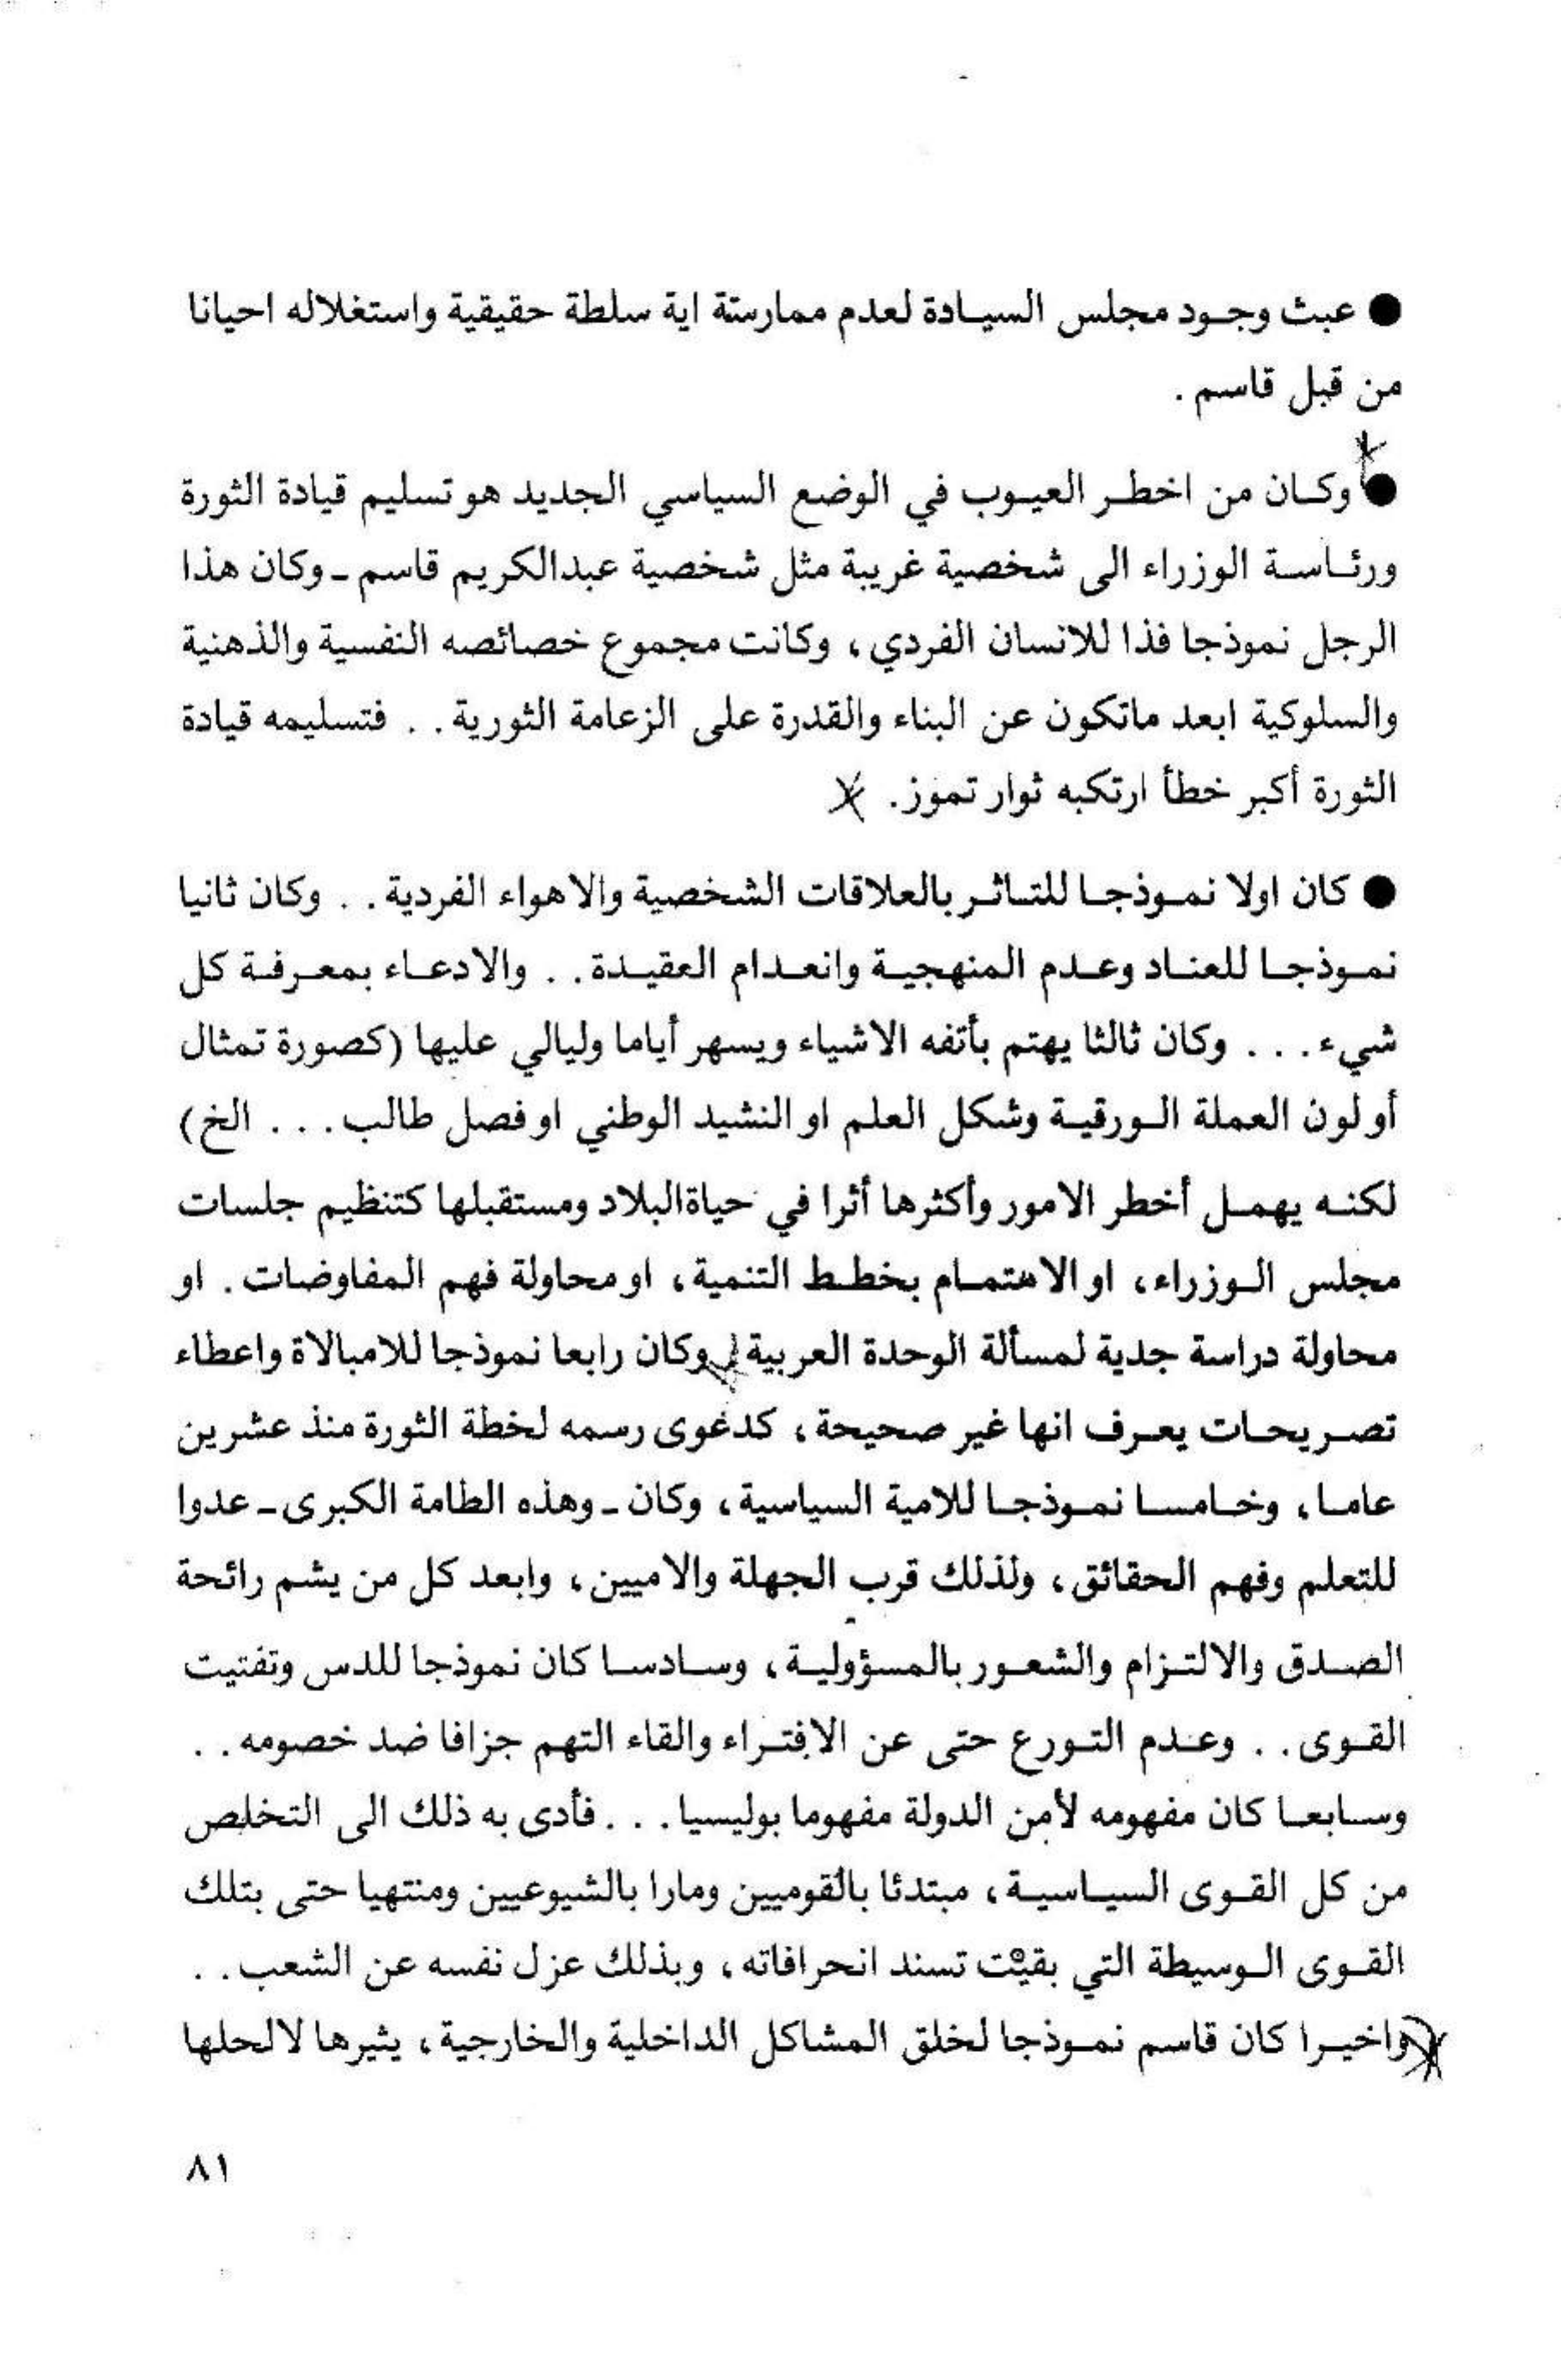 ● عبث وجود مجلس السيادة لعدم ممارستة اية سلطة حقيقية واستغلاله احيانا
من قبل قاسم .
● وكان من اخطر العيوب في الوضع السياسي الجديد هو تسليم قيادة الثورة
ورئاسة الوزراء الى شخصية غريبة مثل شخصية عبدالكريم قاسم ـ وكان هذا
الرجل نموذجا فذا للانسان الفردي ، وكانت مجموع خصائصه النفسية والذهنية
والسلوكية ابعد ماتكون عن البناء والقدرة على الزعامة الثورية . . فتسليمه قيادة
الثورة أكبر خطأ ارتكبه ثوار تموز .
● كان اولا نموذجا للتاثر بالعلاقات الشخصية والاهواء الفردية . . وكان ثانيا
نموذجا للعناد وعدم المنهجية وانعدام العقيدة . . والادعاء بمعرفة كل
شيء . . . وكان ثالثا يهتم بأتفه الاشياء ويسهر أياما وليالي عليها (كصورة تمثال
أو لون العملة الورقية وشكل العلم او النشيد الوطني او فصل طالب . . . الخ)
لكنه يهمل أخطر الامور وأكثرها أثرا في حياةالبلاد ومستقبلها كتنظيم جلسات
مجلس الوزراء ، او الاهتمام بخطط التنمية ، او محاولة فهم المفاوضات . او
محاولة دراسة جدية لمسألة الوحدة العربية وكان رابعا نموذجا للامبالاة واعطاء
تصريحات يعرف انها غير صحيحة ، كدعوى رسمه لخطة الثورة منذ عشرين
عاما ، وخامسا نموذجا للامية السياسية ، وكان ـ وهذه الطامة الكبرى ـ عدوا
للتعلم وفهم الحقائق ، ولذلك قرب الجهلة والاميين ، وابعد كل من يشم رائحة
الصدق والالتزام والشعور بالمسؤولية ، وسادسا كان نموذجا للدس وتفتيت
القوى . . وعدم التورع حتى عن الافتراء والقاء التهم جزافا ضد خصومه . .
وسابعا كان مفهومه لأمن الدولة مفهوما بوليسيا . . . فأدى به ذلك الى التخلص
من كل القوى السياسية ، مبتدئا بالقوميين ومارا بالشيوعيين ومنتهيا حتى بتلك
القوى الوسيطة التي بقيت تسند انحرافاته ، وبذلك عزل نفسه عن الشعب . .
واخيرا كان قاسم نموذجا لخلق المشاكل الداخلية والخارجية ، يثيرها لالحلها
٨١